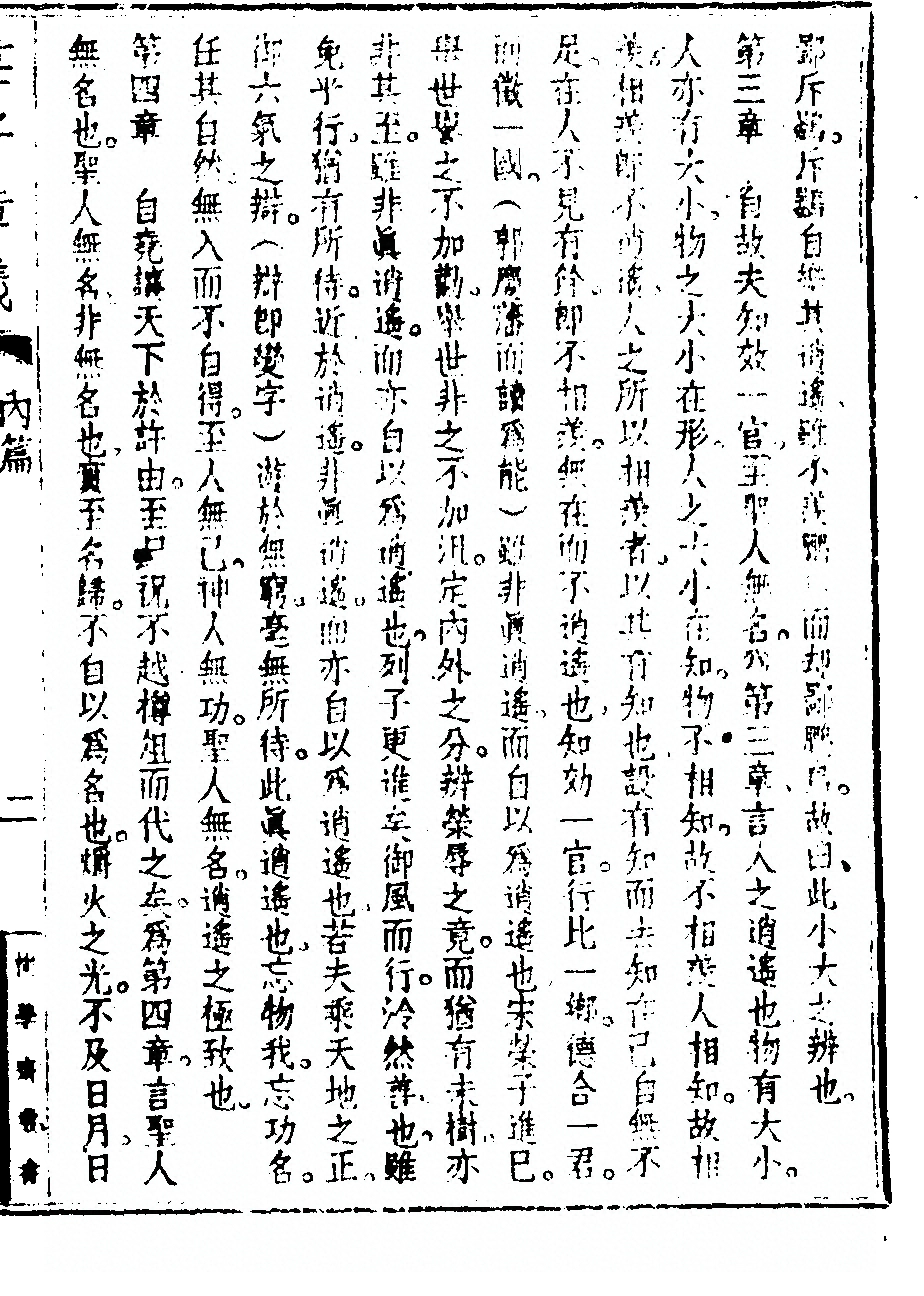 鄙斥鷃。斥鷃自樂其逍遙、雖不羨鵬而却鄙鵬鳥。故曰、此小大之辨也。
第三章　自故夫知效一官、至聖人無名。爲第三章、言人之逍遙也、物有大小。
人亦有大小。物之大小在形、人之大小在知。物不相知、故不相羨、人相知、故相
羨。相羨即不逍遙、人之所以相羨者、以其有知也、設有知而去知、在己自無不
足、在人不見有餘、即不相羨。無在而不逍遙也、知効一官。行比一鄉。德合一君。
而徵一國。（郭慶藩而讀爲能）雖非眞逍遙、而自以爲逍遙也、宋榮子進已。
舉世譽之不加勸。舉世非之不加沮。定內外之分。辨榮辱之竟。而猶有未樹、亦
非其至。雖非眞逍遙。而亦自以爲逍遙也。列子更進矣、御風而行。泠然善也。雖
免乎行、猶有所待。近於逍遙。非眞逍遙。而亦自以爲逍遙也、若夫乘天地之正。
御六氣之辯。（辯即變字）游於無窮。毫無所待。此眞逍遙也、忘物我。忘功名。
任其自然、無入而不自得。至人無己。神人無功。聖人無名。逍遙之極致也。
第四章　自堯讓天下於許由。至尸祝不越樽俎而代之矣。爲第四章、言聖人
無名也。聖人無名、非無名也、實至名歸。不自以爲名也。爝火之光。不及日月、日
內篇
二